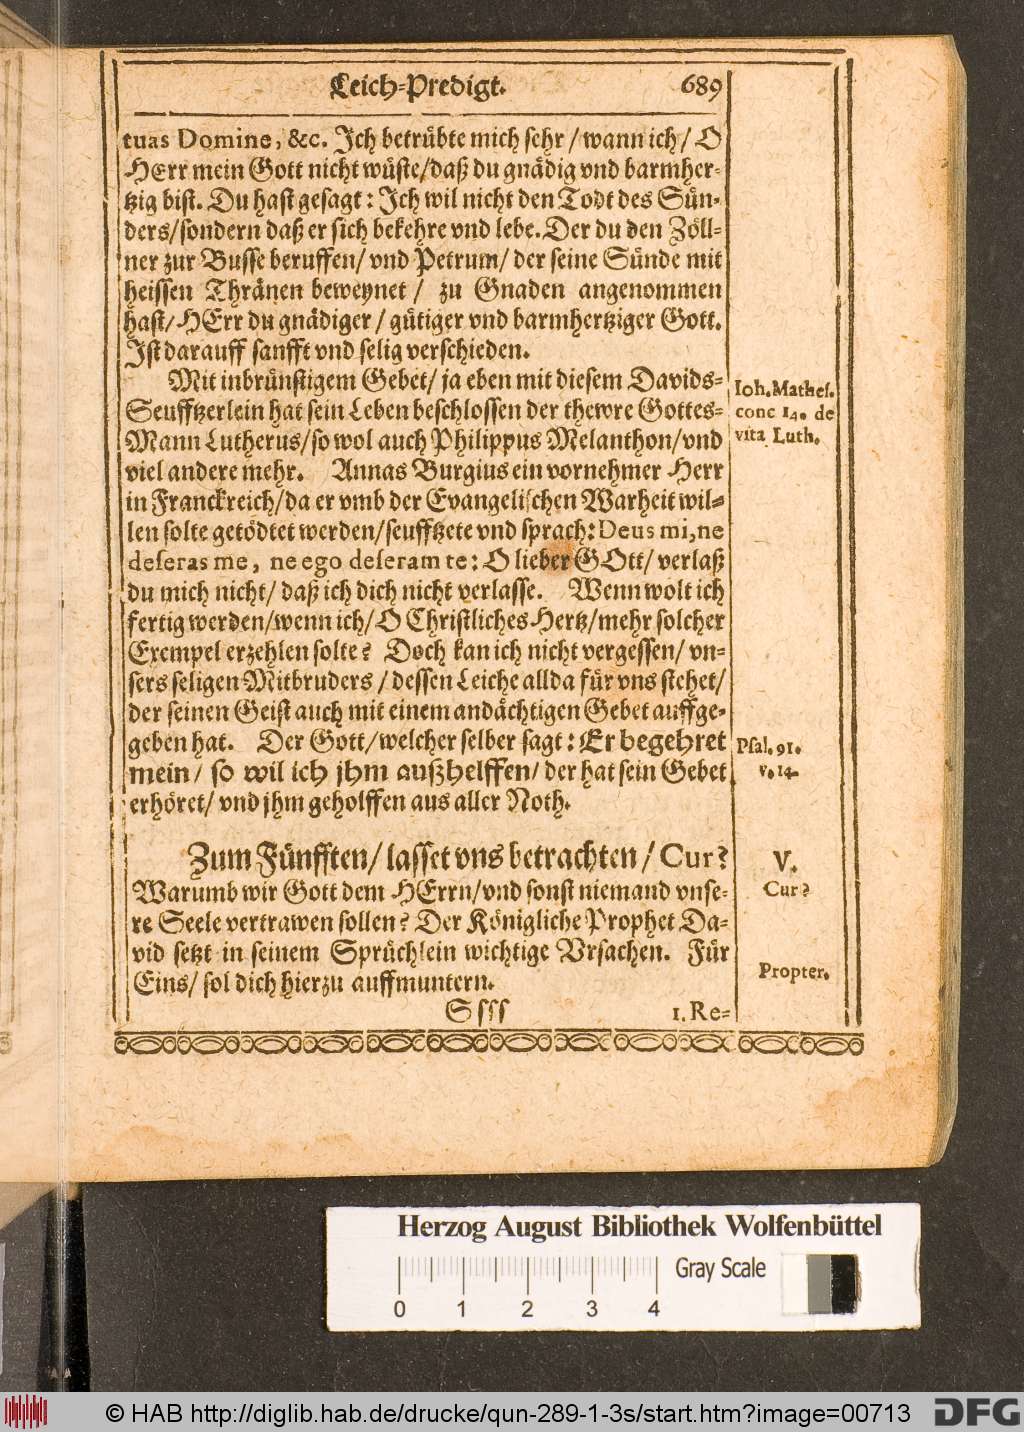 Leich-Predigt. 689
tuas Domine, &c. Jch betrübte mich sehr / wann ich / O
HErr mein Gott nicht wüste / daß du gnädig vnd barmher-
tzig bist. Du hast gesagt: Jch wil nicht den Todt des Sün-
ders / sondern daß er sich bekehre vnd lebe. Der du den Zöll-
ner zur Busse beruffen / vnd Petrum / der seine Sünde mit
heissen Thränen beweynet / zu Gnaden angenommen
hast / HErr du gnädiger / gütiger vnd barmhertziger Gott.
Jst darauff sanfft vnd selig verschieden.
Mit inbrünstigem Gebet / ja eben mit diesem Davids-
Seufftzerlein hat sein Leben beschlossen der thewre Gottes-
Mann Lutherus / so wol auch Philippus Melanthon / vnd
viel andere mehr. Annas Burgius ein vornehmer Herr
in Franckreich / da er vmb der Evangelischen Warheit wil-
len solte getödtet werden / seufftzete vnd sprach: Deus mi, ne
deseras me, ne ego deseram te: O lieber GOtt / verlaß
du mich nicht / daß ich dich nicht verlasse. Wenn wolt ich
fertig werden / wenn ich / O Christliches Hertz / mehr solcher
Exempel erzehlen solte? Doch kan ich nicht vergessen / vn-
sers seligen Mitbruders / dessen Leiche allda für vns stehet /
der seinen Geist auch mit einem andächtigen Gebet auffge-
geben hat. Der Gott / welcher selber sagt: Er begehret
mein / so wil ich jhm außhelffen / der hat sein Gebet
erhöret / vnd jhm geholffen aus aller Noth.
Ioh. Mathes.
conc 14. de
vita Luth.
Psal. 91.
v. 14.
Zum Fünfften / lasset vns betrachten / Cur?
Warumb wir Gott dem HErrn / vnd sonst niemand vnse-
re Seele vertrawen sollen? Der Königliche Prophet Da-
vid setzt in seinem Sprüchlein wichtige Vrsachen. Für
Eins / sol dich hierzu auffmuntern.
V.
Cur?
Propter.
S sss 1. Re-
Herzog August Bibliothek Wolfenbüttel
Gray Scale
0 1 2 3 4
© HAB http://diglib.hab.de/drucke/qun-289-1-3s/start.htm?image=00713
DFG